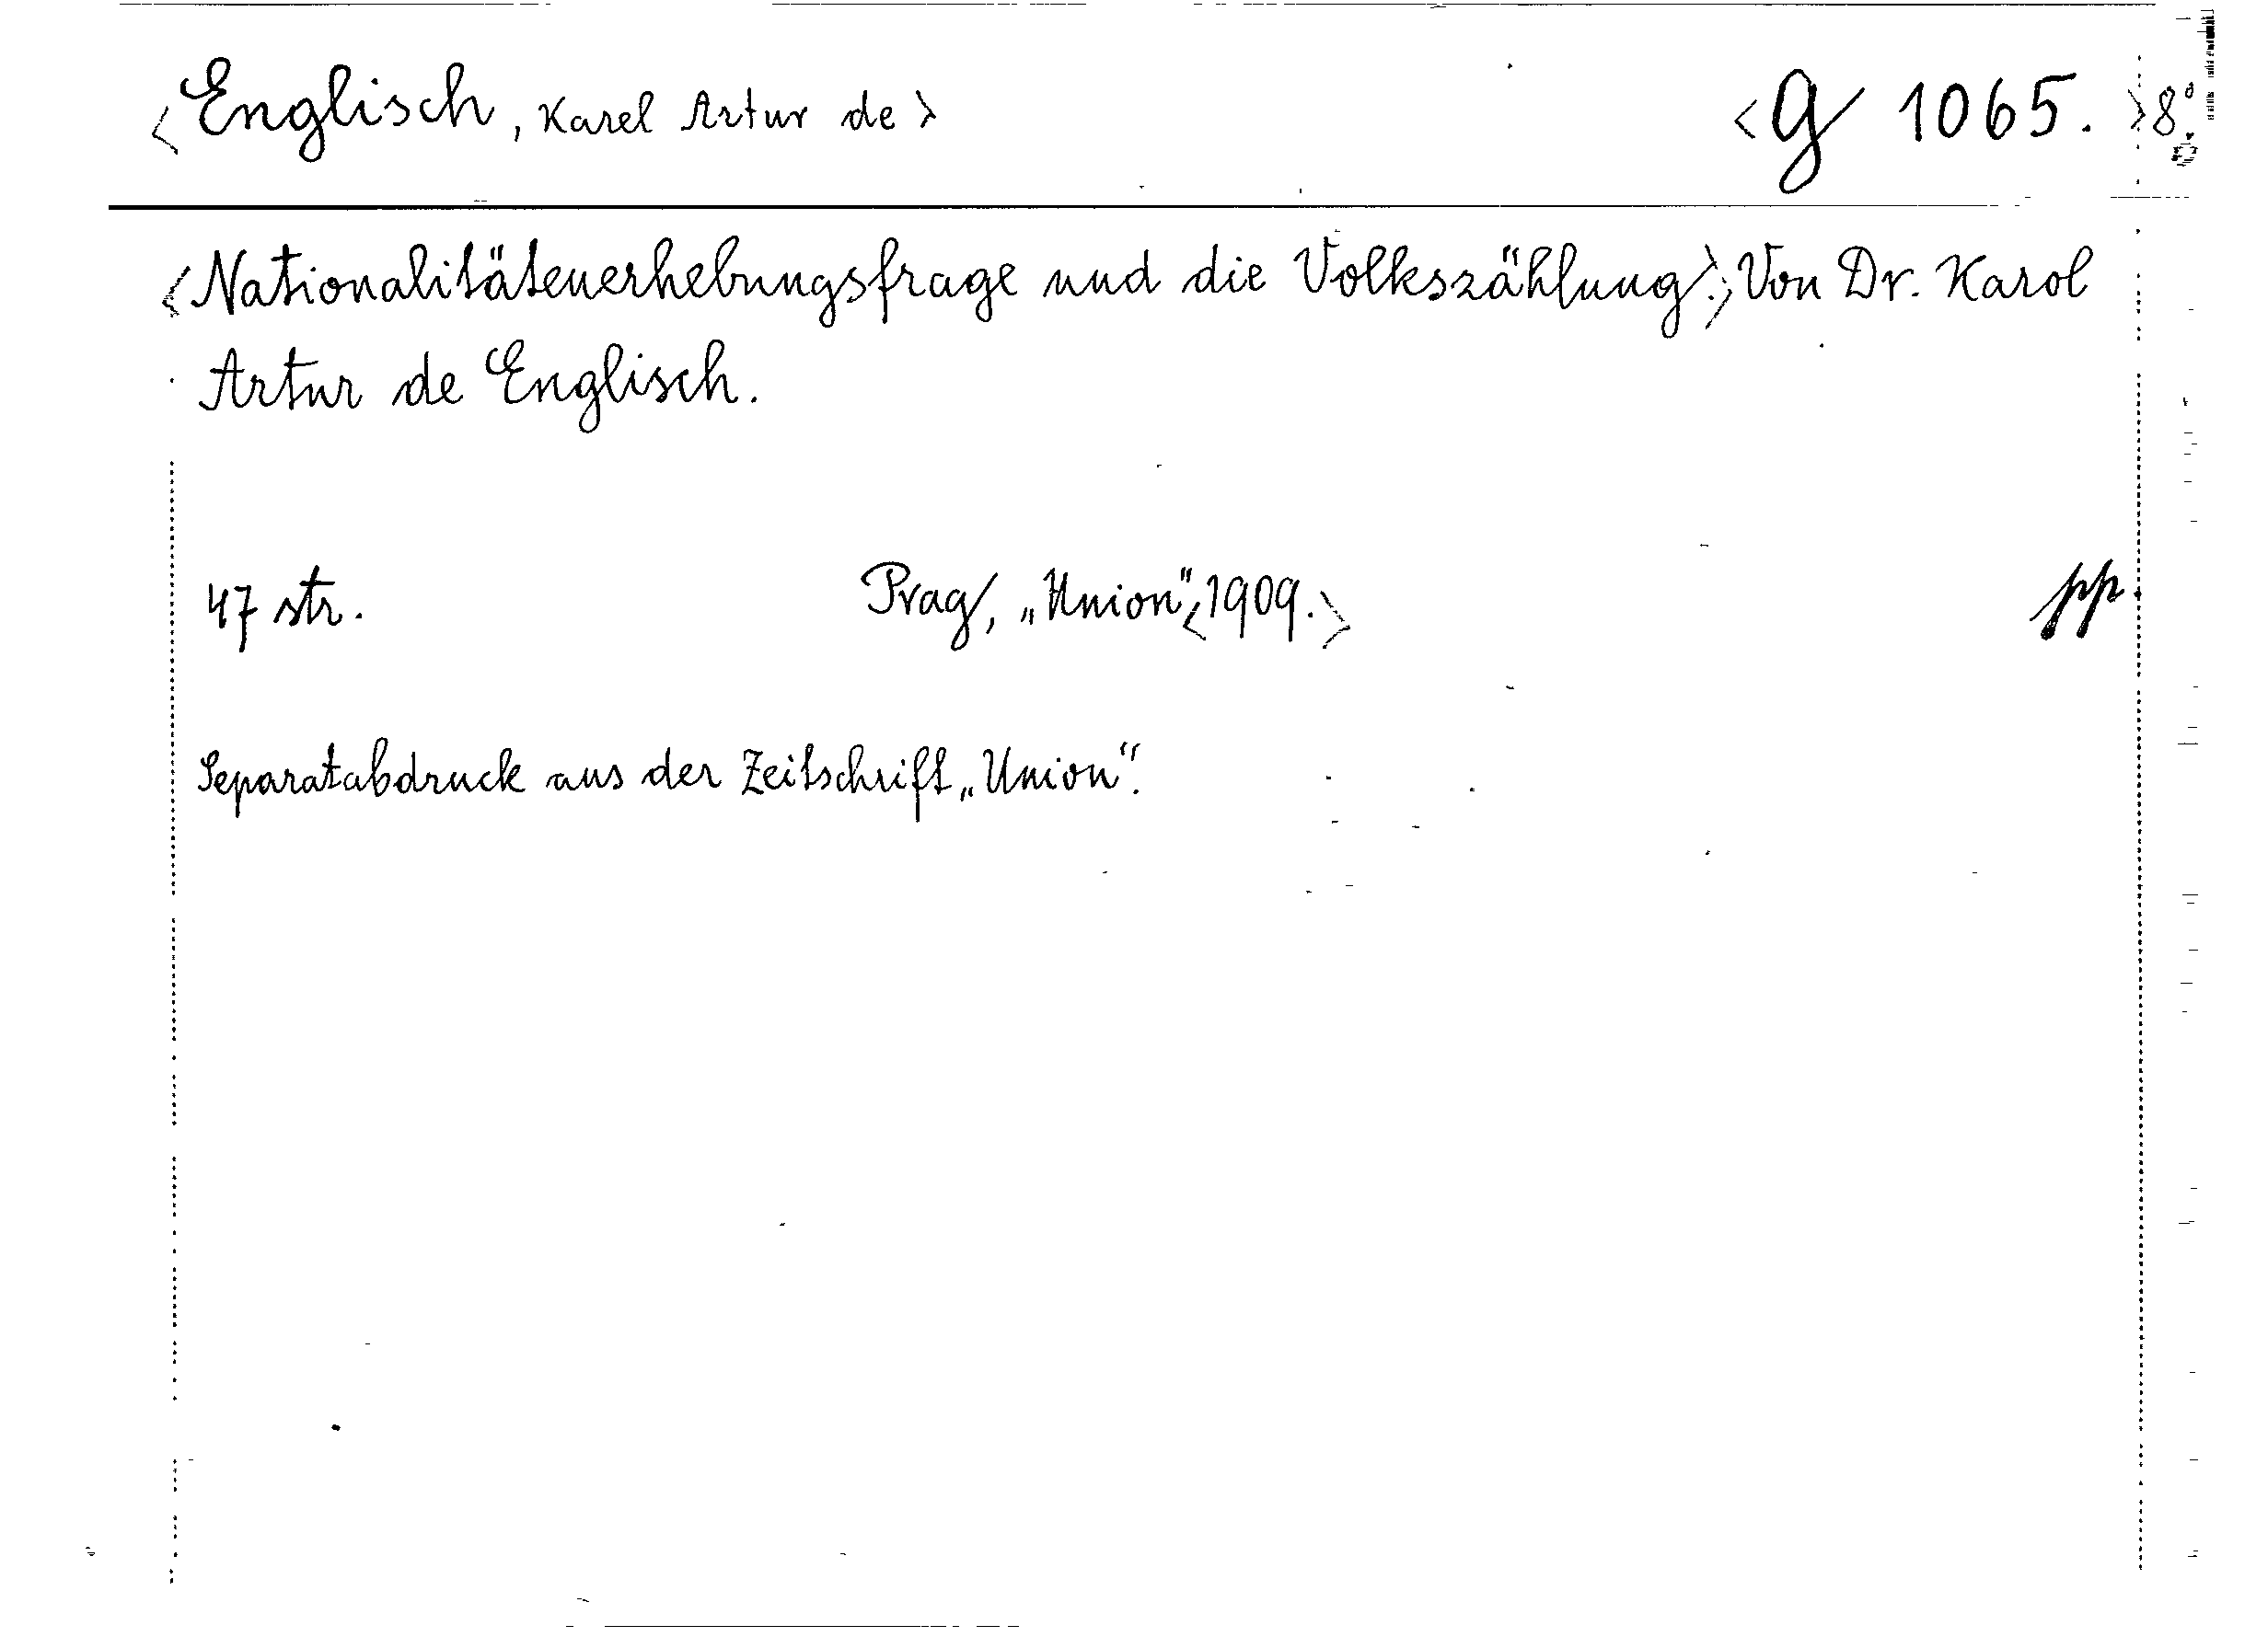 <Englisch, Karel Artur de> <g 1065. >8°.
<Nationalitätenerhebungsfrage und die Volkszählung.> Von Dr. Karol
Artur de Englisch.
47 str. Prag, „Union“, <1909.> pp.
Separatabdruck aus der Zeitschrift „Union“.